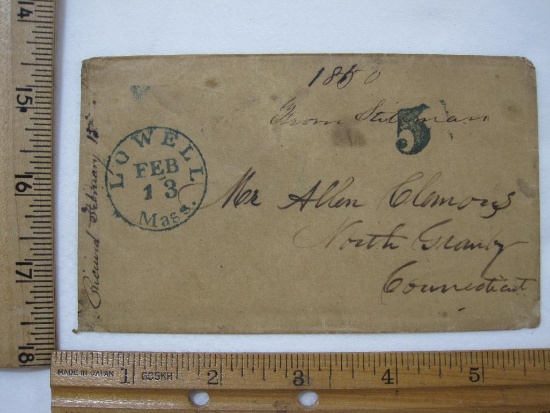 1850
From Stillman
5
LOWELL
FEB
13
Mass.
Mr Allen Clemons
North Granby
Connecticut
Received February 15
15
16
17
18
MADE IN JAPAN
1
GOSHK
2
3
4
5